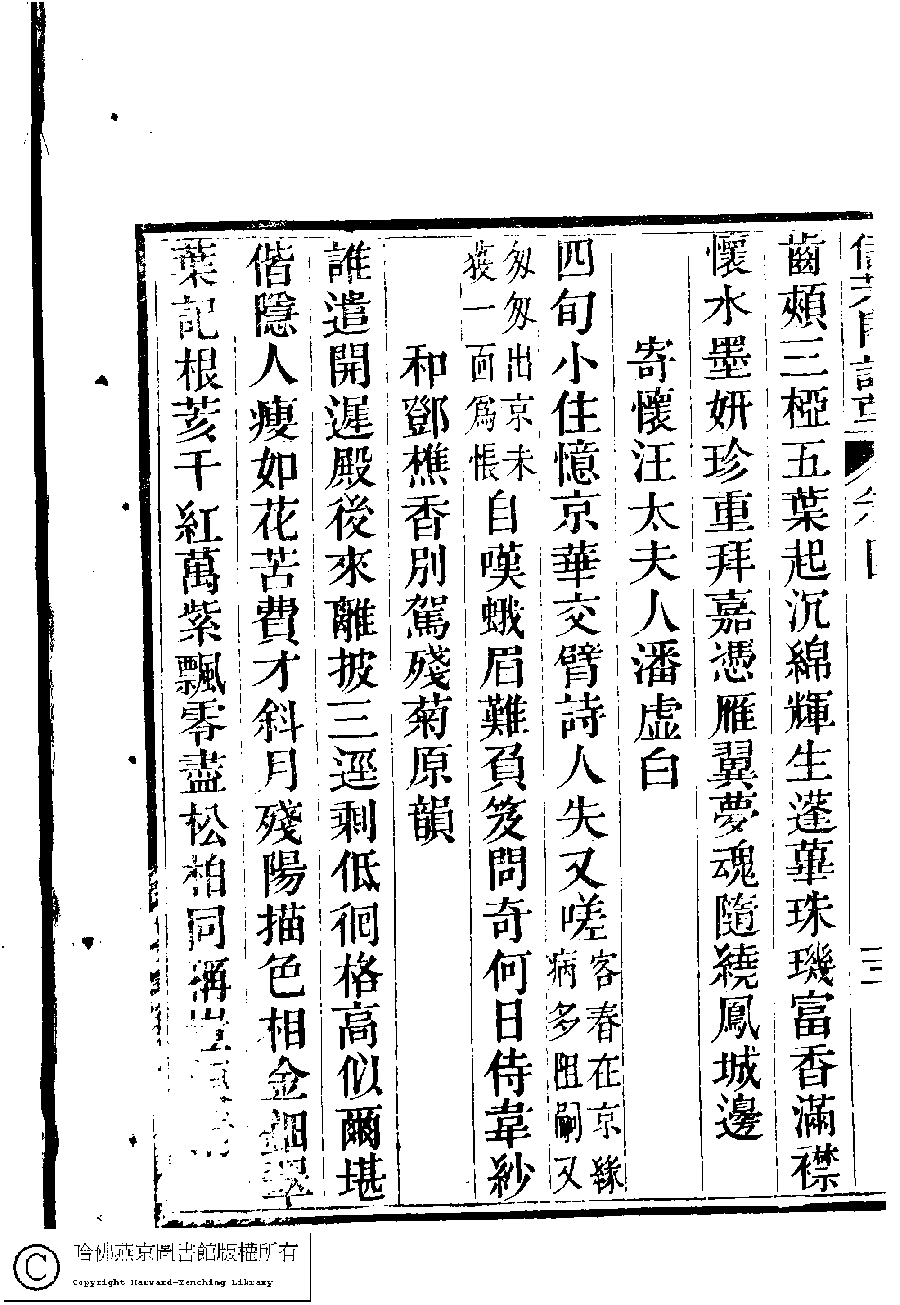 詩草 卷四
齒頰三椏五葉起沉綿輝生蓬蓽珠璣富香滿襟
懷水墨妍珍重拜嘉憑雁翼夢魂隨繞鳳城邊
寄懷汪太夫人潘虛白
四旬小住憶京華交臂詩人失又嗟客春在京緣病多阻嗣又
匆匆出京未獲一面爲悵自嘆蛾眉難負笈問奇何日侍韋紗
和鄧樵香別駕殘菊原韻
誰遣開遲殿後來離披三逕剩低徊格高似爾堪
偕隱人瘦如花苦費才斜月殘陽描色相金鈿翠
葉記根荄千紅萬紫飄零盡松柏同稱
哈佛燕京圖書館版權所有
Copyright Harvard-Yenching Library